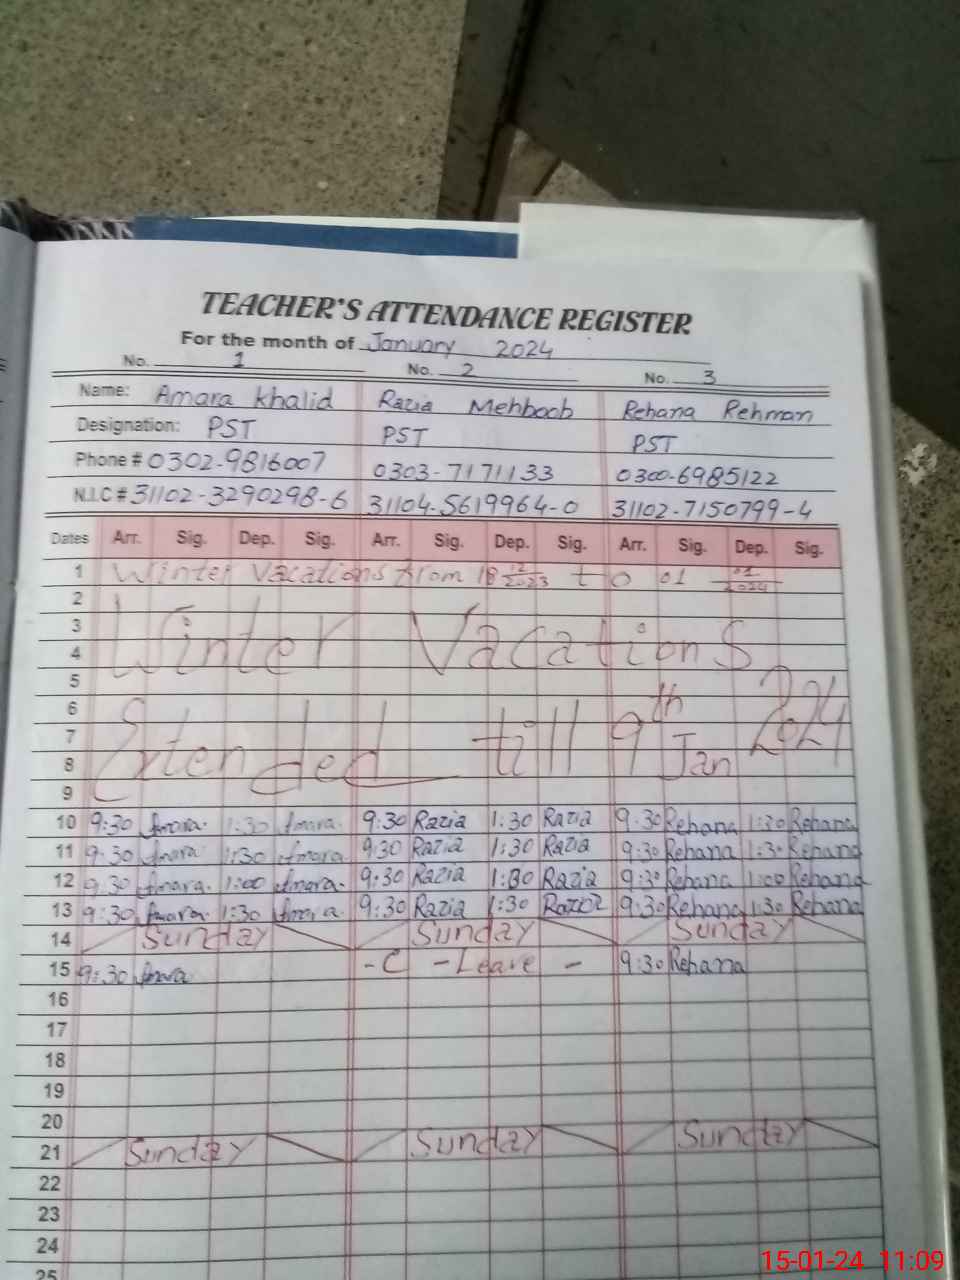 TEACHER'S ATTENDANCE REGISTER
For the month of January 2024
No. 1 No. 2 No. 3
Name: Amara Khalid Razia Mehboob Rehana Rehman
Designation: PST PST PST
Phone # 0302-9816007 0303-7171133 0300-6985122
N.I.C # 31102-3290298-6 31104-5619964-0 31102-7150799-4
Dates Arr. Sig. Dep. Sig. Arr. Sig. Dep. Sig. Arr. Sig. Dep. Sig.
1 Winter Vacations from 18 12/2023 to 01 01/2024
2
3
4 Winter Vacations
5
6
7
8 Extended till 9th Jan 2024
9
10 9:30 Amara. 1:30 Amara. 9:30 Razia 1:30 Razia 9:30 Rehana 1:30 Rehana
11 9:30 Amara 1:30 Amara. 9:30 Razia 1:30 Razia 9:30 Rehana 1:30 Rehana
12 9:30 Amara. 1:00 Amara. 9:30 Razia 1:00 Razia 9:30 Rehana 1:00 Rehana
13 9:30 Amara. 1:30 Amara. 9:30 Razia 1:30 Razia 9:30 Rehana 1:30 Rehana
14 Sunday Sunday Sunday
15 9:30 Amara - C - Leave - 9:30 Rehana
16
17
18
19
20
21 Sunday Sunday Sunday
22
23
24
25
15-01-24 11:09